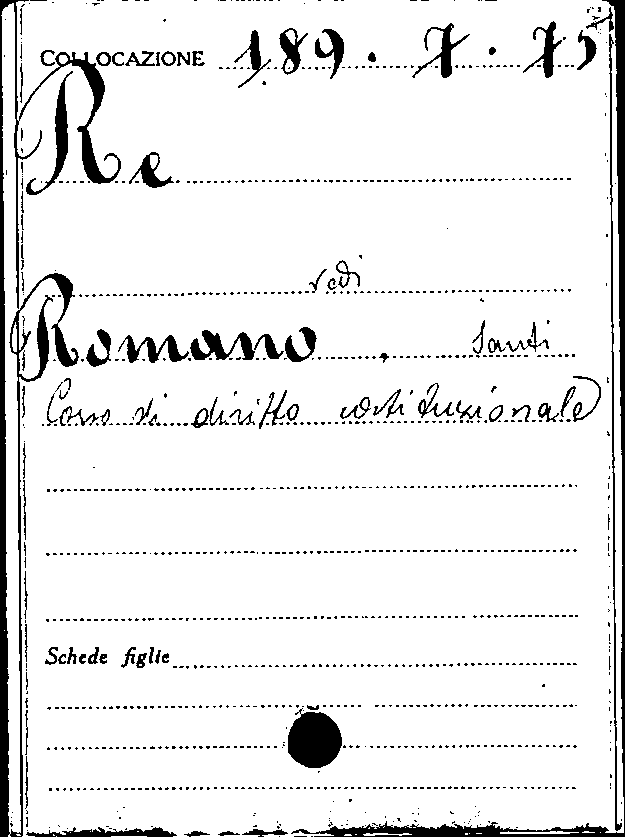 COLLOCAZIONE 189.7.75
Re
vedi
Romano, Santi
Corso di diritto costituzionale
Schede figlie